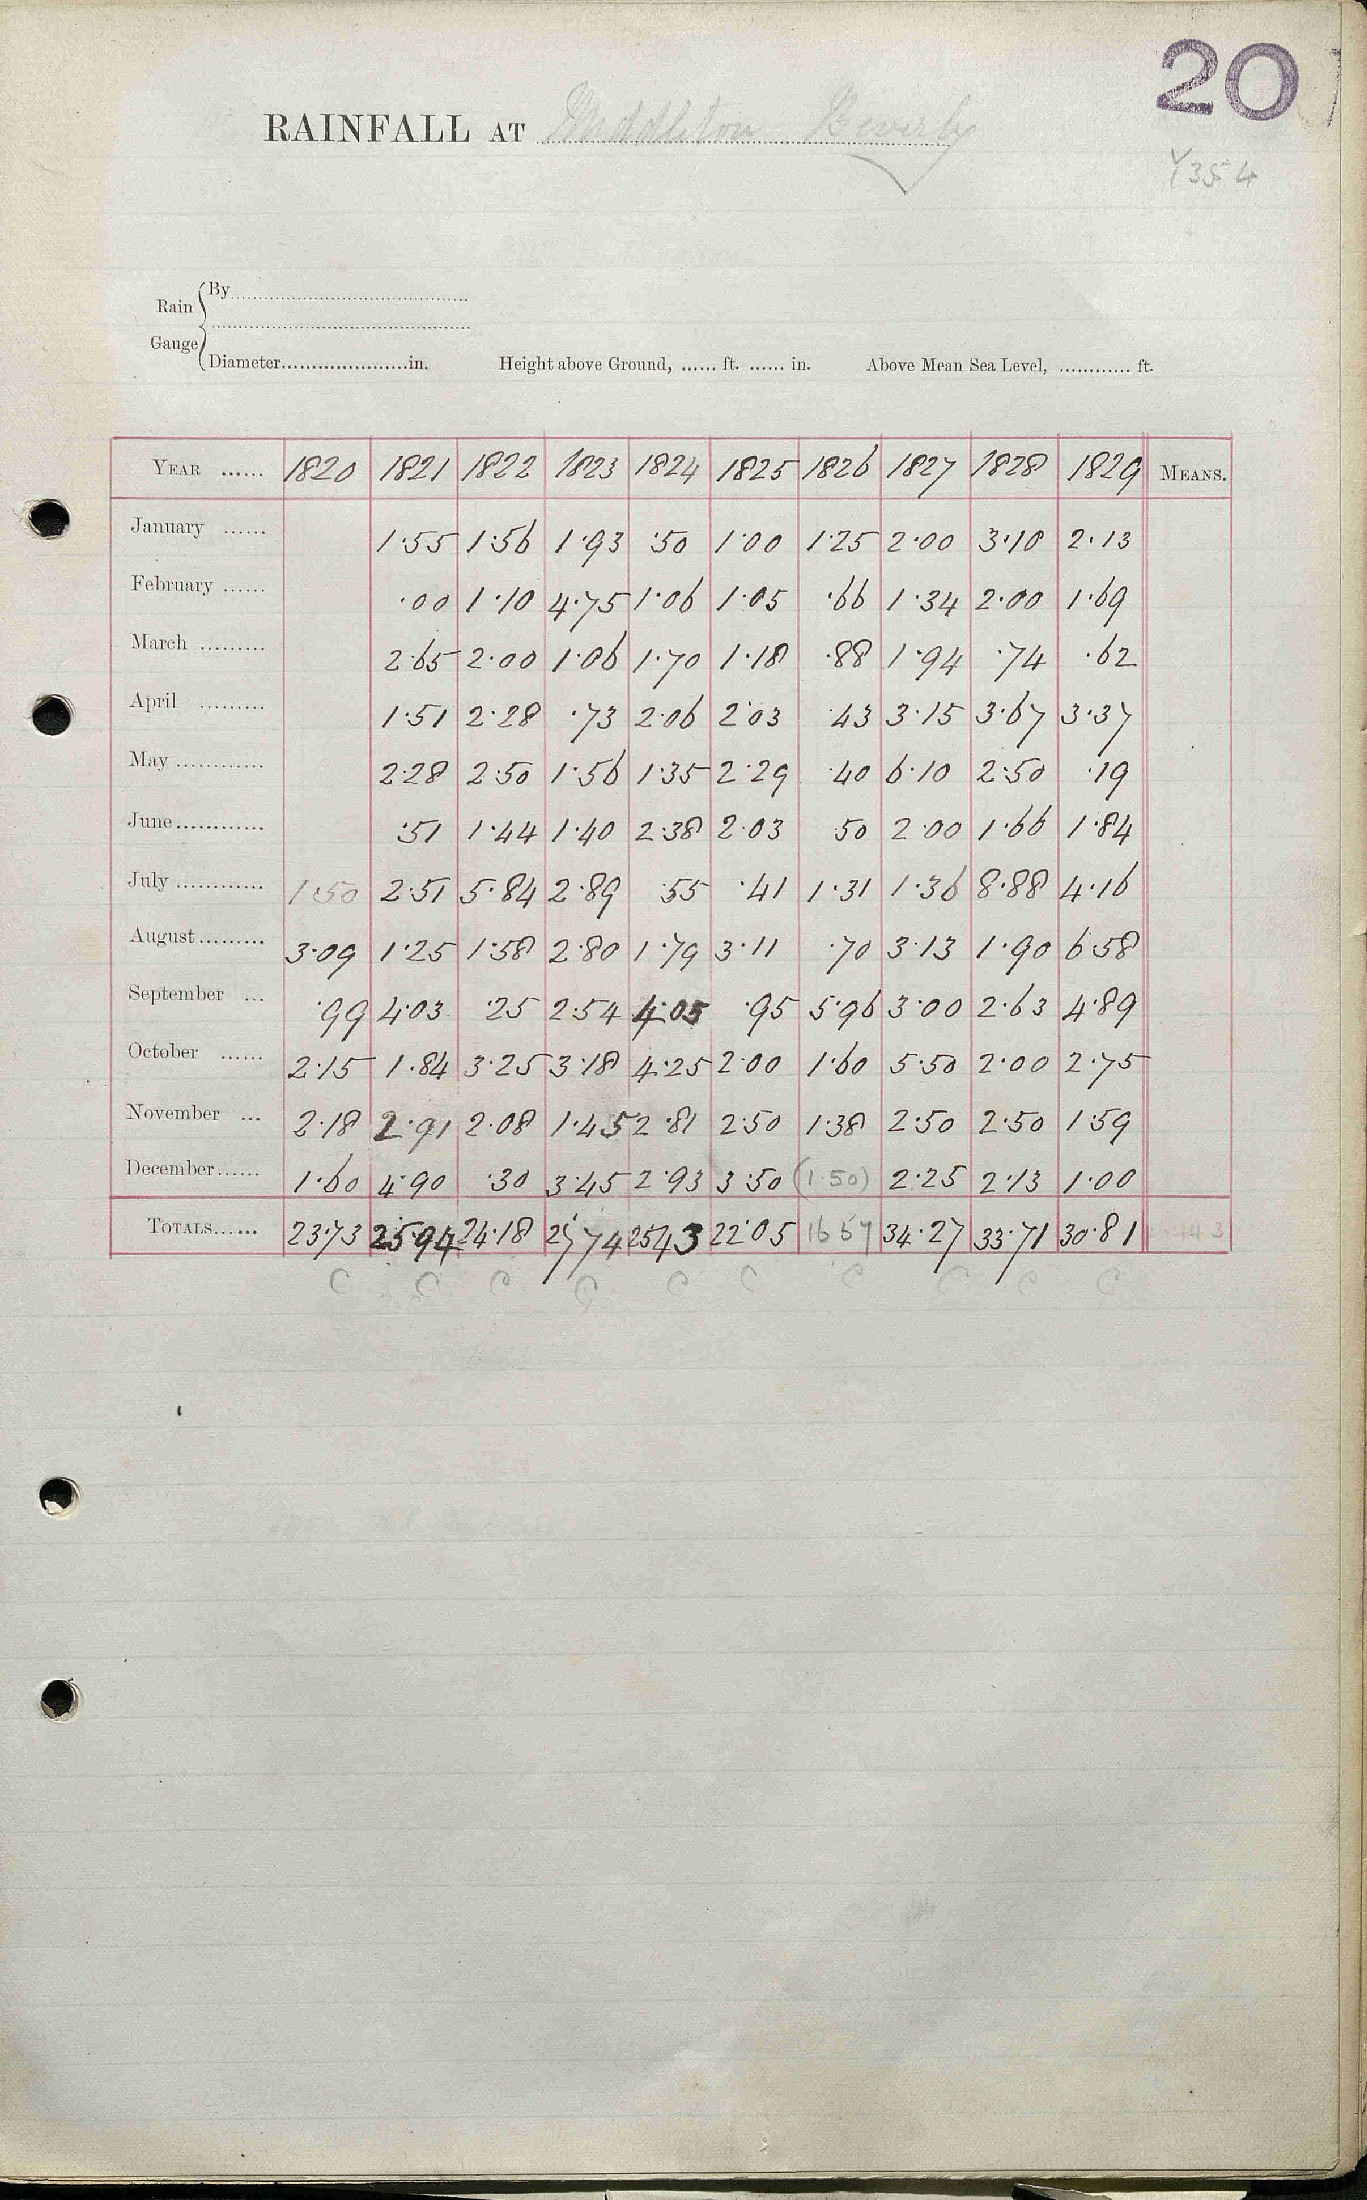 20
RAINFALL AT Middleton Beverly
Y354
Rain Gauge { By
Diameter in. Height above Ground, ...... ft. ...... in. Above Mean Sea Level, ............ ft.
YEAR ...... 1820 1821 1822 1823 1824 1825 1826 1827 1828 1829 MEANS.
January ...... 1·55 1·56 1·93 ·50 1·00 1·25 2·00 3·10 2·13
February ...... ·00 1·10 4·75 1·06 1·05 ·66 1·34 2·00 1·69
March ......... 2·65 2·00 1·06 1·70 1·18 ·88 1·94 ·74 ·62
April ......... 1·51 2·28 ·73 2·06 2·03 ·43 3·15 3·67 3·37
May ............ 2·28 2·50 1·56 1·35 2·29 ·40 6·10 2·50 ·19
June ............ ·51 1·44 1·40 2·38 2·03 ·50 2·00 1·66 1·84
July ............ 1·50 2·51 5·84 2·89 ·55 ·41 1·31 1·36 8·88 4·16
August ......... 3·09 1·25 1·58 2·80 1·79 3·11 ·70 3·13 1·90 6·58
September ... ·99 4·03 ·25 2·54 4·05 ·95 5·96 3·00 2·63 4·89
October ...... 2·15 1·84 3·25 3·18 4·25 2·00 1·60 5·50 2·00 2·75
November ... 2·18 2·91 2·08 1·45 2·81 2·50 1·38 2·50 2·50 1·59
December ...... 1·60 4·90 ·30 3·45 2·93 3·50 (1·50) 2·25 2·13 1·00
TOTALS ...... 23·73 25·94 24·18 27·74 25·43 22·05 16·57 34·27 33·71 30·81
C C C C C C C C C C